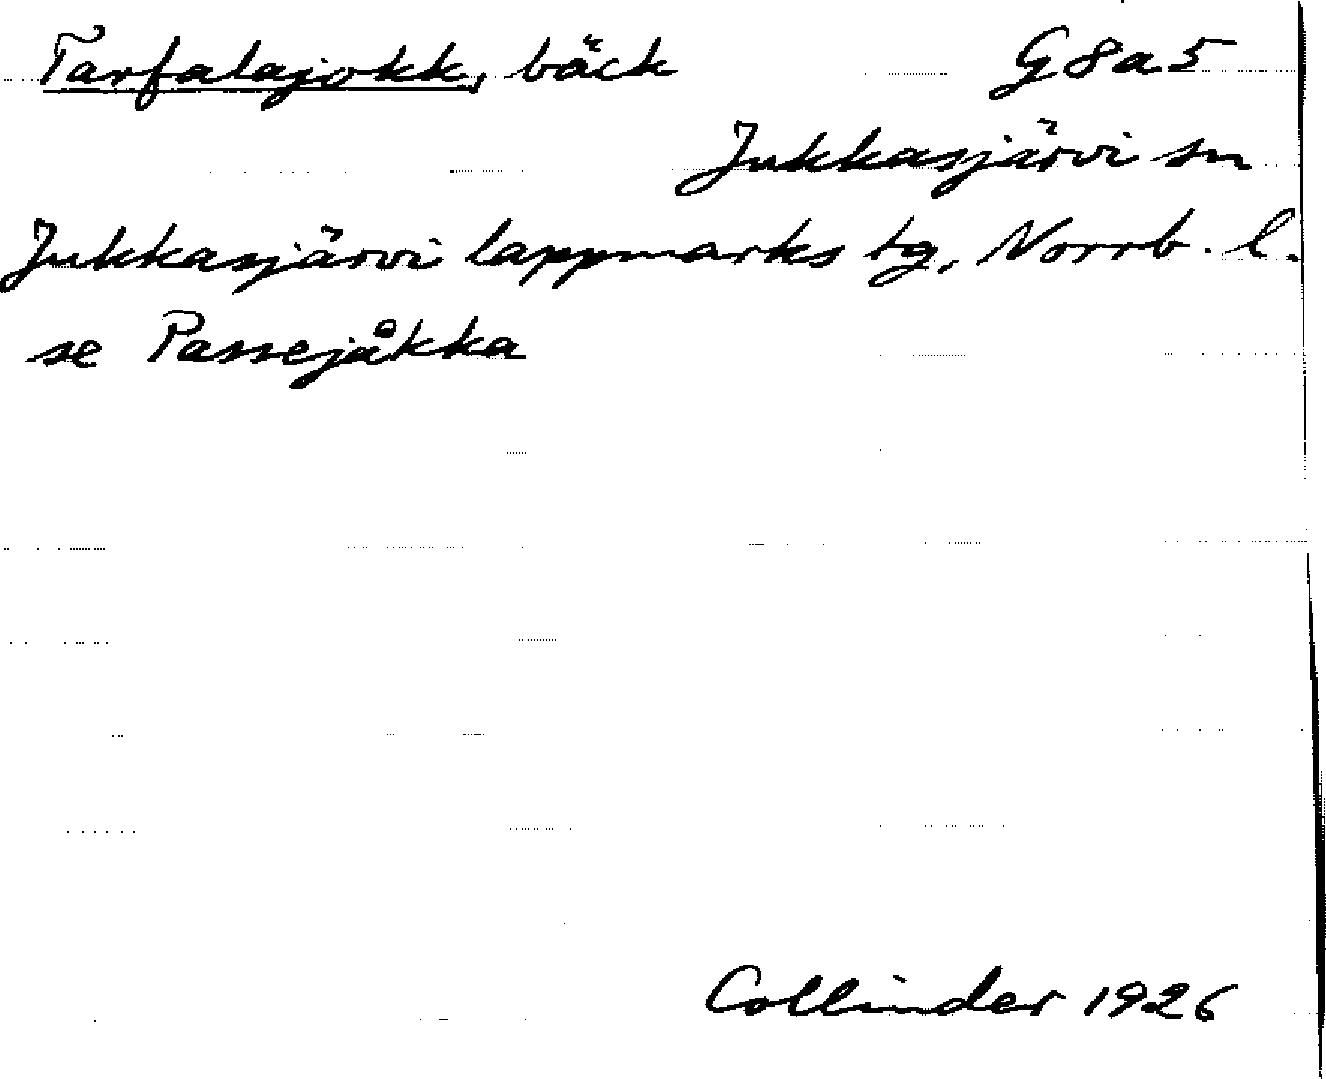 Tarfalajokk, bäck G8a5
Jukkasjärvi sn
Jukkasjärvi lappmarks tg, Norrb. l.
se Passejåkka
Collinder 1926